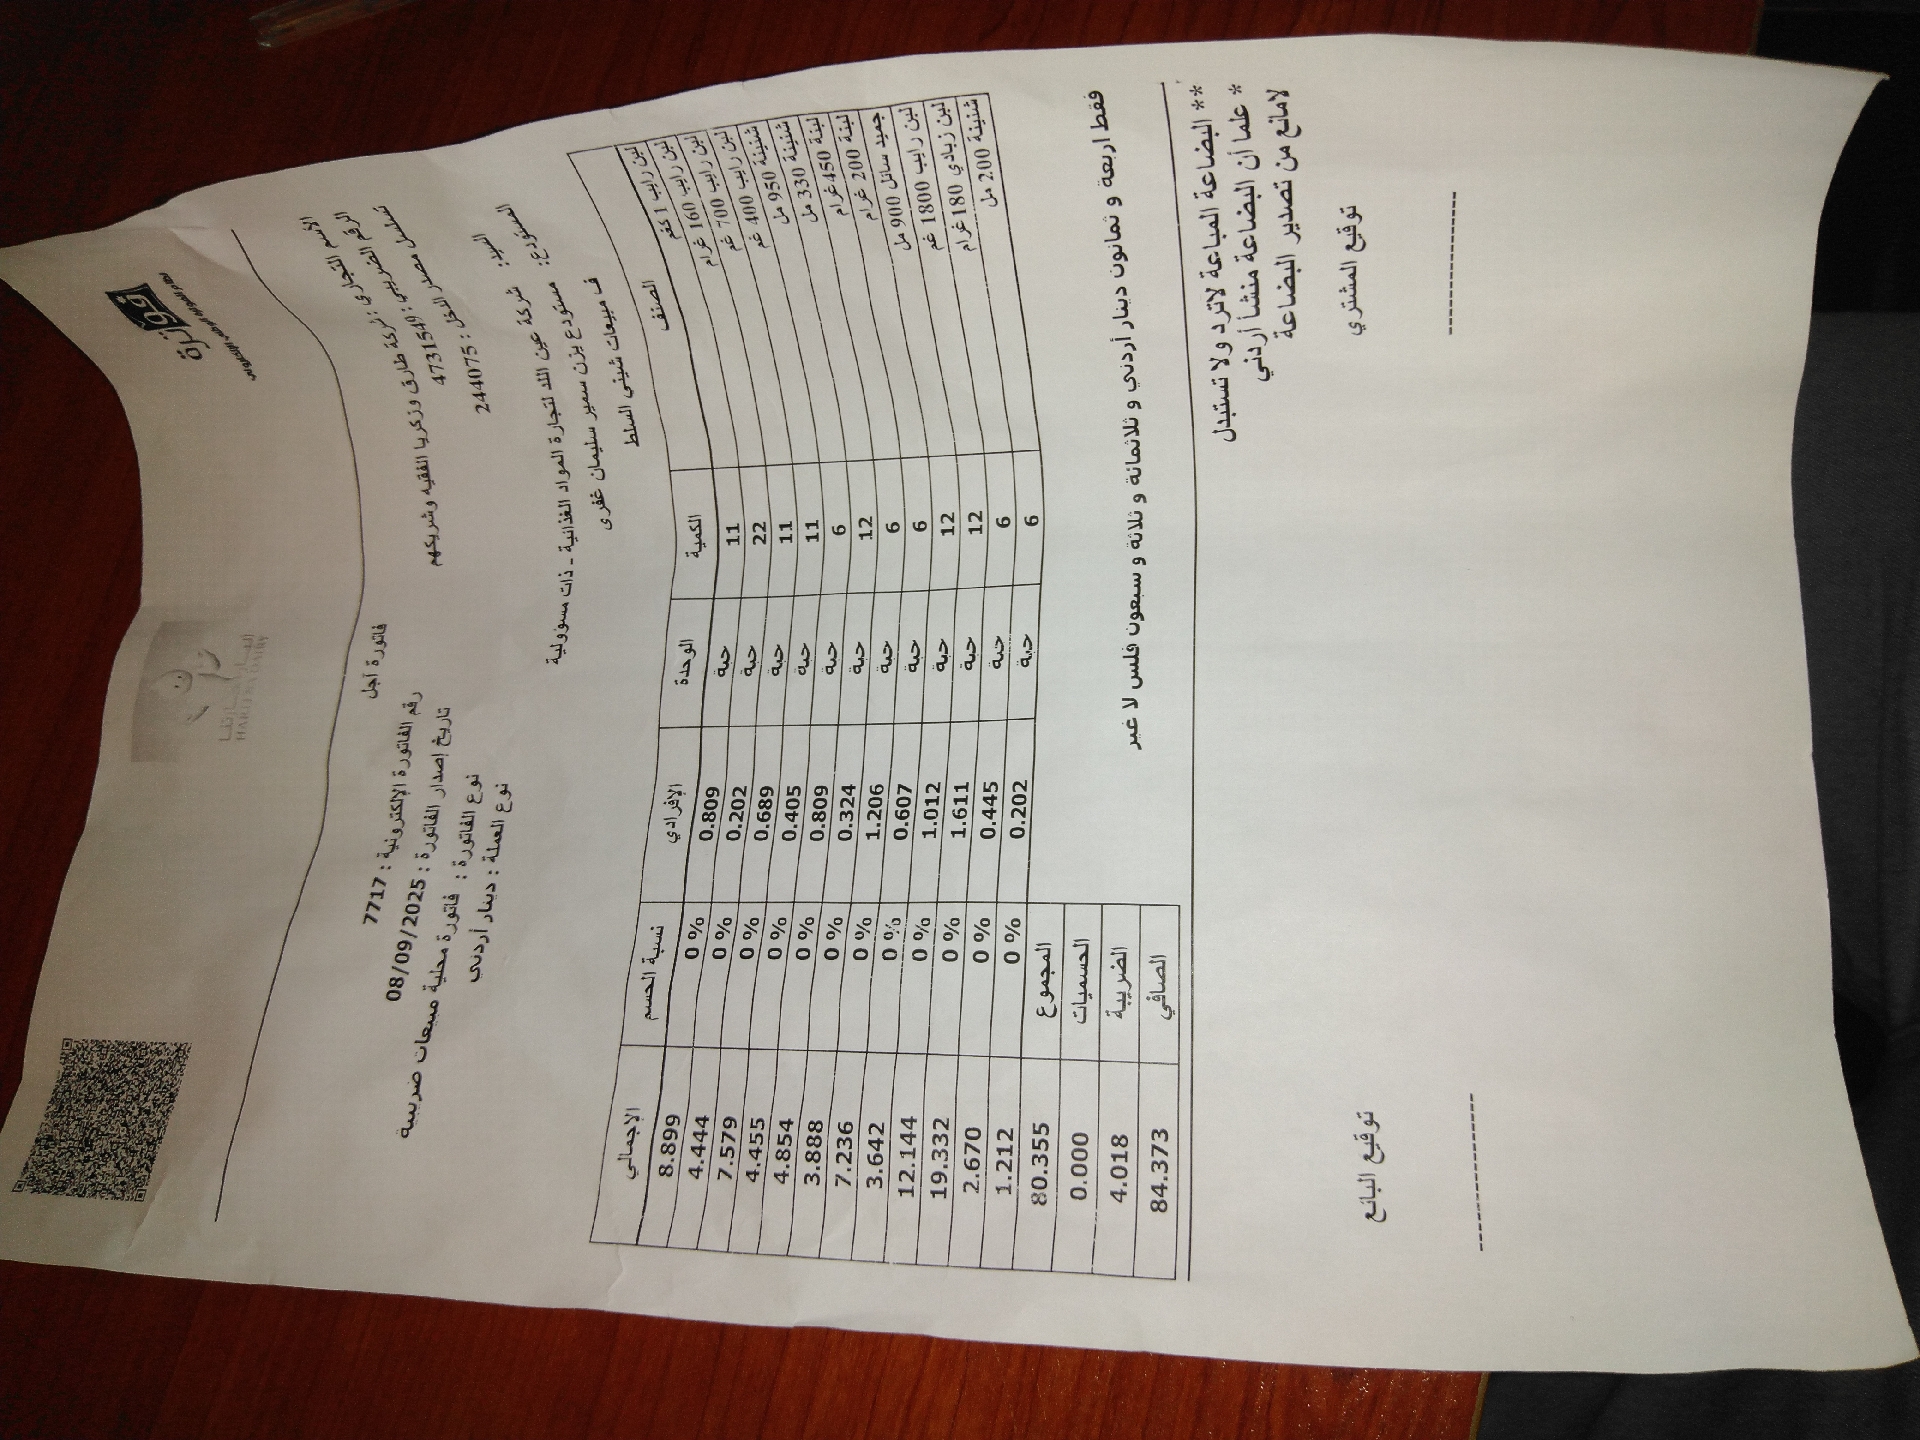 فوترة
نظام الفوترة الوطني الإلكتروني
HARTHNA DAIRY
الاسم التجاري : شركة طارق وزكريا الفقيه وشريكهم
الرقم الضريبي : 4731549
تسلسل مصدر الدخل : 244075
فاتورة آجل
رقم الفاتورة الإلكترونية : 7717
تاريخ إصدار الفاتورة : 08/09/2025
نوع الفاتورة : فاتورة محلية مبيعات ضريبية
نوع العملة : دينار أردني
السيد: شركة عين اللد لتجارة المواد الغذائية - ذات مسؤولية
المستودع: مستودع يزن سمير سليمان غفري
ف مبيعات شيني السلط
الصنف الكمية الوحدة الإفرادي نسبة الحسم الإجمالي
لبن رايب 1 كغم 11 حبة 0.809 0 % 8.899
لبن رايب 160 غرام 22 حبة 0.202 0 % 4.444
لبن رايب 700 غم 11 حبة 0.689 0 % 7.579
لبن رايب 400 غم 11 حبة 0.405 0 % 4.455
شنينة 950 مل 6 حبة 0.809 0 % 4.854
شنينة 330 مل 12 حبة 0.324 0 % 3.888
لبنة 450 غرام 6 حبة 1.206 0 % 7.236
لبنة 200 غرام 6 حبة 0.607 0 % 3.642
جميد سائل 900 مل 12 حبة 1.012 0 % 12.144
لبن رايب 1800 غم 12 حبة 1.611 0 % 19.332
لبن زبادي 180 غرام 6 حبة 0.445 0 % 2.670
شنينة 200 مل 6 حبة 0.202 0 % 1.212
المجموع 80.355
الحسميات 0.000
الضريبة 4.018
الصافي 84.373
فقط اربعة و ثمانون دينار أردني و ثلاثمائة و ثلاثة و سبعون فلس لا غير
** البضاعة المباعة لاترد ولا تستبدل
* علما أن البضاعة منشأ أردني
لامانع من تصدير البضاعة
توقيع المشتري
توقيع البائع